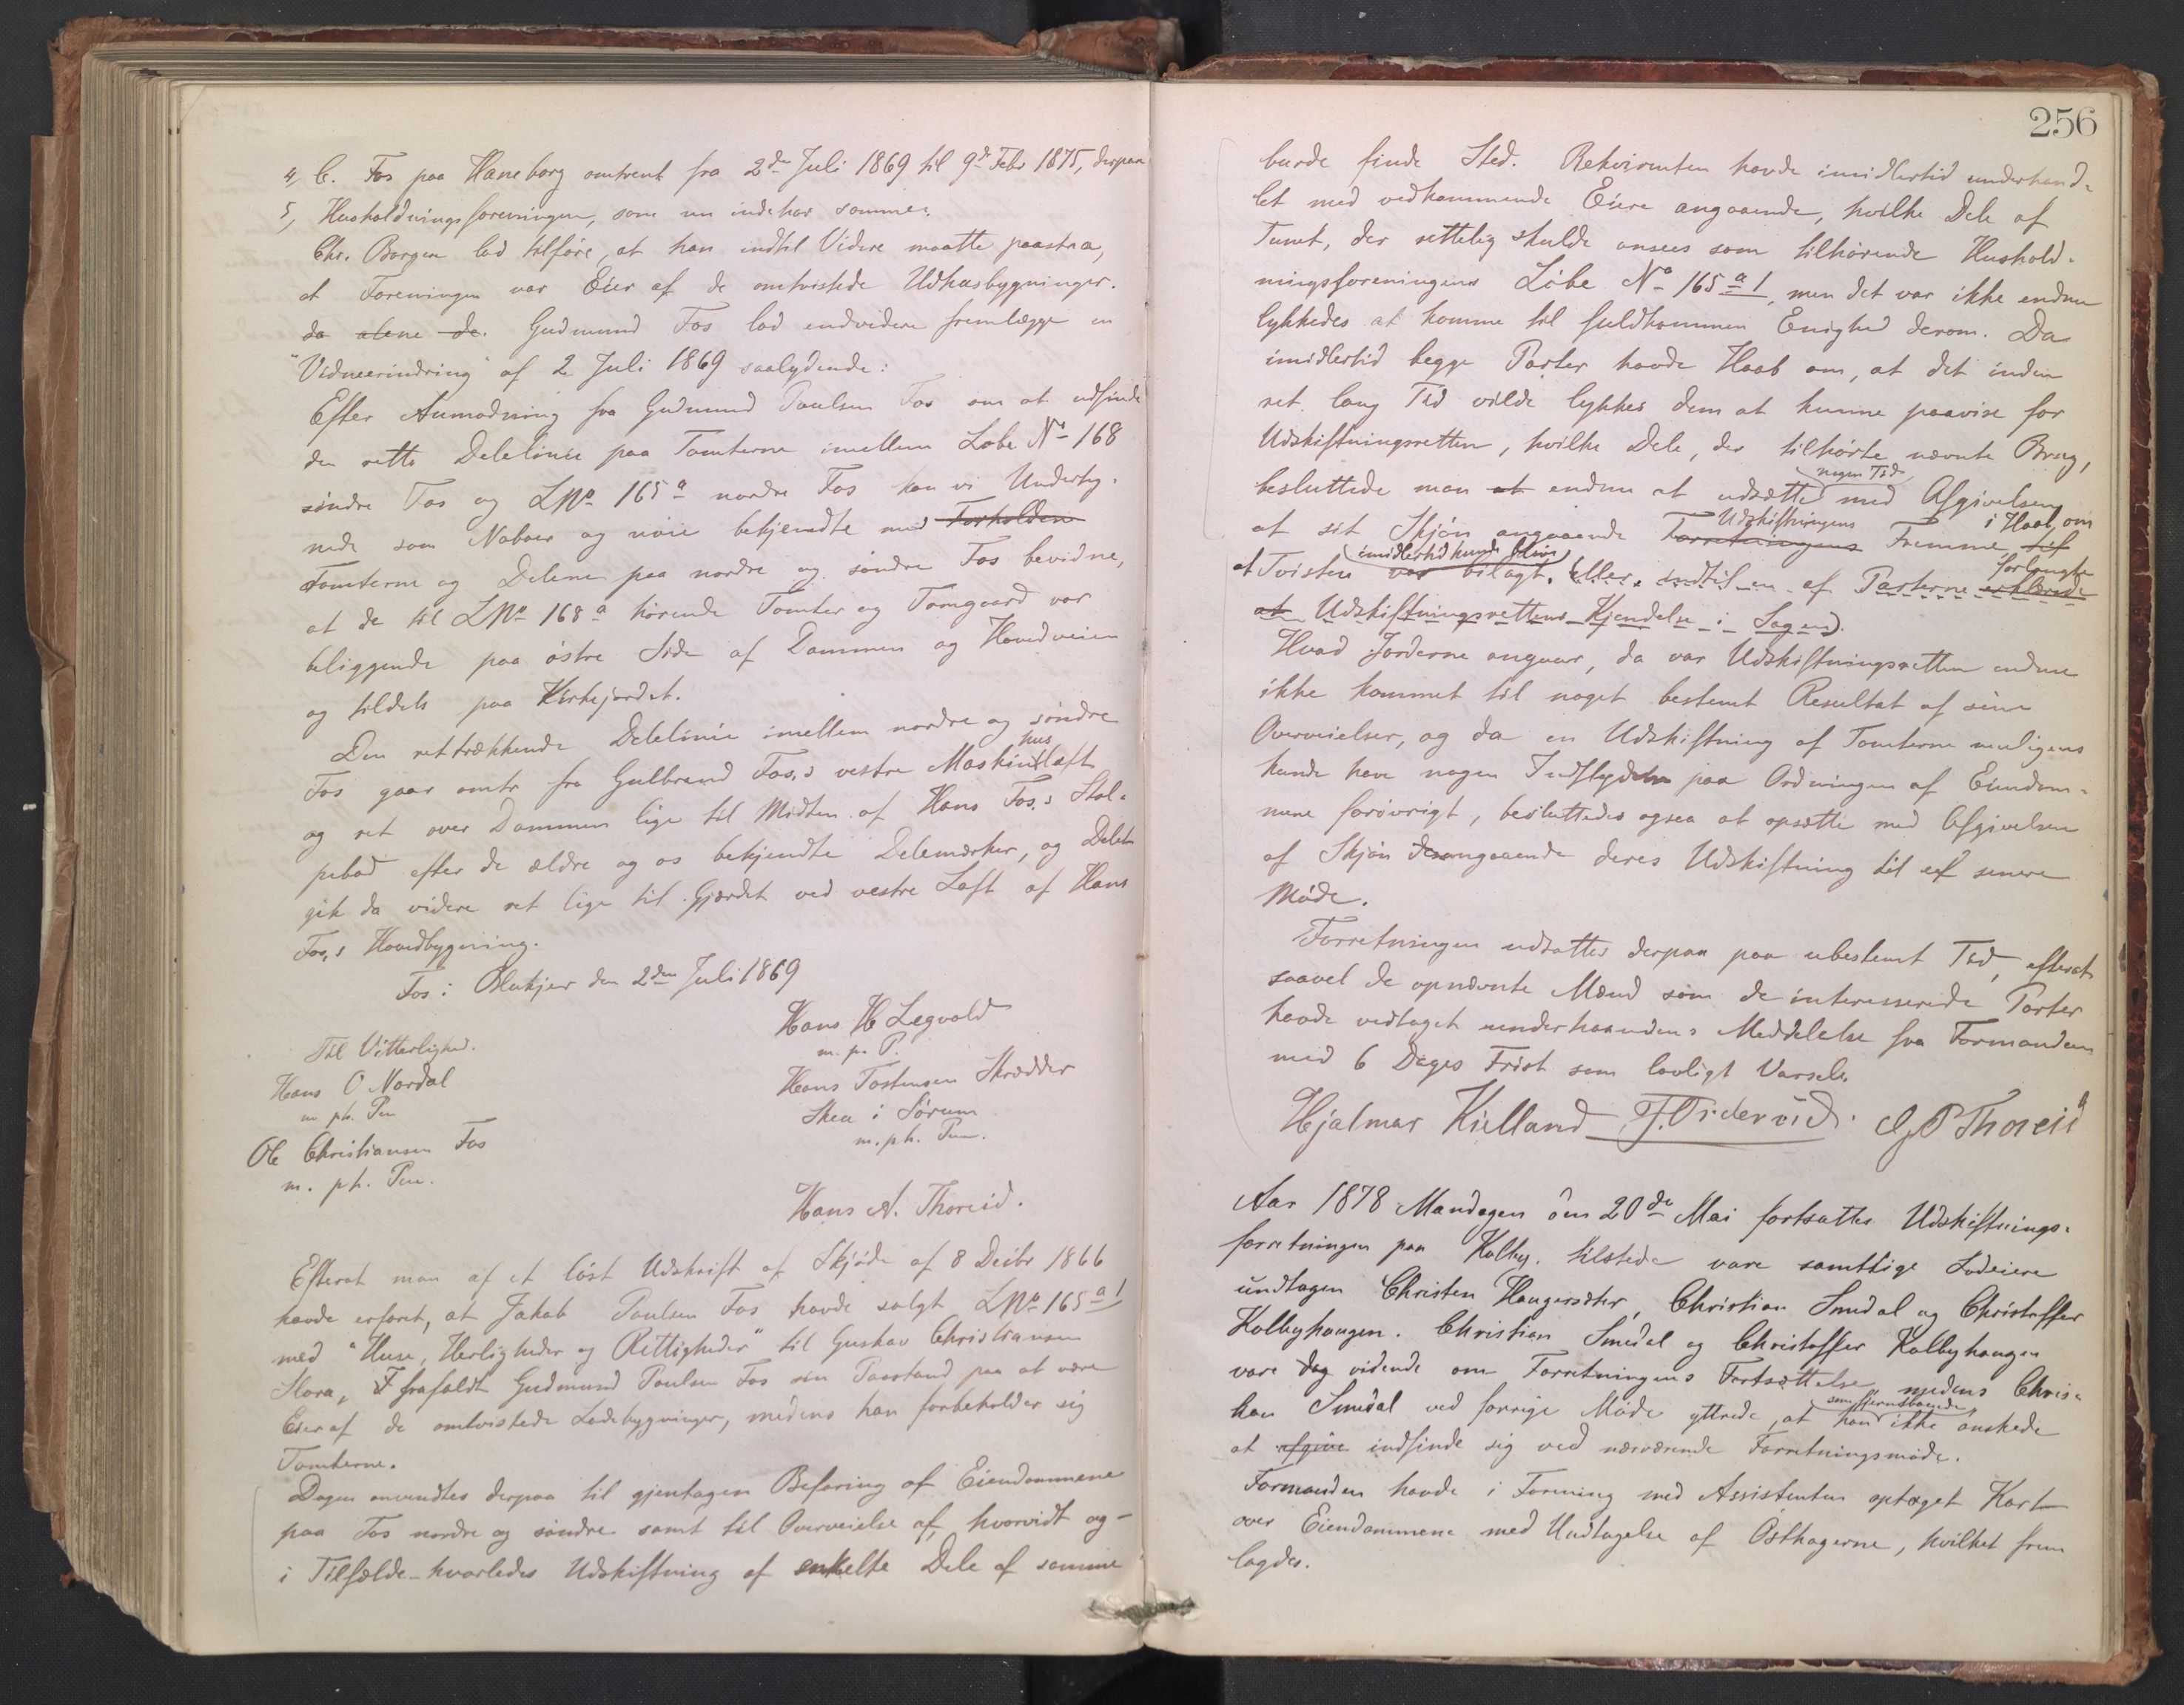 4, C. Fos paa Haneborg omtrent fra 2den Juli 1869 til 9de Febr 1875, derpaa
5, Husholdningsforeningen, som nu indehar samme.
Chr. Borgen lod tilføre, at han indtil Videre maatte paastaa,
at Foreningen var Eier af de omtvistede Udhusbygninger.
da alene de. Gudmund Fos lod endvidere fremlægge en
"Vidneerindring" af 2 Juli 1869 saalydende:
Efter Anmodning fra Gudmund Poulsen Fos om at udfinde
den rette Delelinie paa Tomterne imellem Løbe No 168
søndre Fos og LNo 165a nordre Fos kan vi Underteg-
nede som Naboer og nøie bekjendte med Forholdene
Tomterne og Delene paa nordre og søndre Fos bevidne,
at de til LNo 168a hørende Tomter og Tomgaard var
beliggende paa østre Side af Dammen og Hovedveien
og tildels paa Kirkejordet.
Den rettrækkende Delelinie imellem nordre og søndre
Fos gaar omtr fra Gulbrand Fos,s vestre Maskinhusloft
og ret over Dammen lige til Midten af Hans Fos,s Stol-
pebod efter de ældre og os bekjendte Delemærker, og Delet
gik da videre ret lige til Gjærdet ved vestre Loft af Hans
Fos,s Hovedbygning.
Fos i Blakjer den 2den Juli 1869
Hans H Legvold
m. p. P.
Til Vitterlighed.
Hans O Nordal
m ph. Pen
Hans Tostensen Skrædder
Skea i Sørum
m. ph. Pen.
Ole Christiansen Fos
m. ph. Pen.
Hans A. Thoreid.
Efterat man af et løst Udskrift af Skjøde af 8 Decbr 1866
havde erfaret, at Jakob Poulsen Fos havde solgt LNo 165a1
med "Huse, Herligheder og Rettigheder" til Gustav Christiansen
Hora, F frafaldt Gudmund Poulsen Fos sin Paastand paa at være
Eier af de omtvistede Ladebygninger, medens han forbeholder sig
Tomterne.
Dagen anvendtes derpaa til gjentagen Befaring af Eiendommene
paa Fos nordre og søndre samt til Overveielse af, hvorvidt og -
i Tilfælde - hvorledes Udskiftning af enkelte Dele af samme
256
burde finde Sted. Rekvirenten havde imidlertid underhand-
let med vedkommende Eiere angaaende, hvilke Dele af
Tunet, der rettelig skulde ansees som tilhørende Hushold-
ningsforeningens Løbe No 165a1, men det var ikke endnu
lykkedes at komme til fuldkommen Enighed derom. Da
imidlertid begge Parter havde Haab om, at det inden
ret lang Tid vilde lykkes dem at kunne paavise for
Udskiftningsretten, hvilke Dele, der tilhørte nævnte Brug,
besluttede man at endnu at udsætte nogen Tid med Afgivelsen
af sit Skjøn angaaende Forretningens Udskiftningens Fremme til i Haab om
at Tvisten var imidlertid kunde blive bilagt. eller indtil en af Parterne erklærede forlangte
at Udskiftningsrettens Kjendelse i Sagen.
Hvad Jorderne angaar, da var Udskiftningsretten endnu
ikke kommet til noget bestemt Resultat af sine
Overveielser, og da en Udskiftning af Tomterne muligens
kunde have nogen Indflydelse paa Ordningen af Eiendom-
mene forøvrigt, besluttedes ogsaa at opsætte med Afgivelsen
af Skjøn desangaaende deres Udskiftning til et senere
Møde.
Forretningen udsattes derpaa paa ubestemt Tid, efterat
saavel de opnævnte Mænd som de interesserede Parter
havde vedtaget underhaandens Meddelelse fra Formanden
med 6 Dages Frist som lovligt Varsel.
Hjalmar Kielland
Aar 1878 Mandagen den 20de Mai fortsattes Udskiftnings-
forretningen paa Kolby. tilstede vare samtlige Lodeiere
undtagen Christen Haugersæter, Christian Smedal og Christoffer
Kolbyhaugen. Christian Smedal og Christoffer Kolbyhaugen
vare dog vidende om Forretningens Fortsættelse, medens Chris-
ten Smedal ved forrige Møde yttrede, at han som fjerntboende ikke ønskede
at afgive indfinde sig ved nærværende Forretningsmøde.
Formanden havde i Forening med Assistenten optaget Kart
over Eiendommene med Undtagelse af Østhagerne, hvilket frem
lagdes.